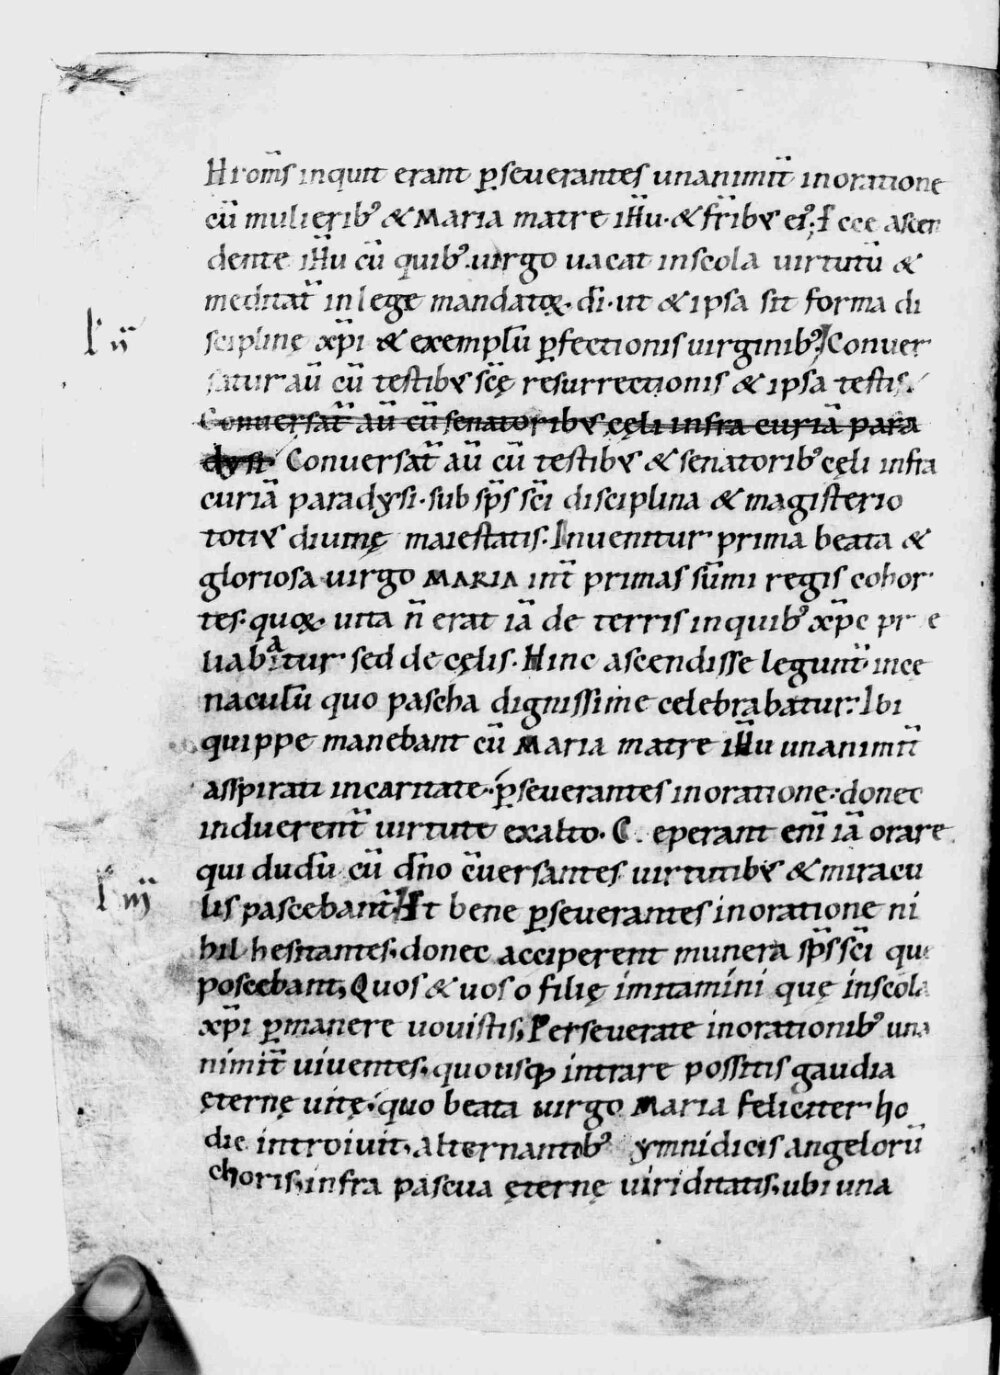 Hi om̄s inquit erant ꝑseuerantes unanimit̄ in oratione
cū mulierib; & MARIA matre ih̄u · & fr̄ibus ei; · Ecce ascen
dente ih̄u cū quib; · uirgo uacat in scola uirtutū &
meditat̄ in lege mandatoꝝ · dī · ut & ipsa sit forma di
scipline xp̄i & exemplū ꝑfectionis uirginib; / Conuer
satur aū cū testibus scę̄ resurrectionis & ipsa testis.
Conuersat̄ aū cū senatoribus cęli infra curiā para
dysi. Conuersat̄ aū cū testibus & senatorib; cęli infra
curiā paradysi · sub sp̄s sc̄i disciplina & magisterio
totius diuinę maiestatis · Inuenitur prima beata &
gloriosa uirgo MARIA int̄ primas sūmi regis cohor
tes · quoꝝ uita n̄ erat iā de terris in quib; xp̄c pr e
uabiatur sed de cęlis · Hinc ascendisse legunt̄ in ce
naculū quo pascha dignissime celebrabatur: Ibi
quippe manebant cū MARIA matre ih̄u unanimit̄
aspirati in caritate · ꝑseuerantes in oratione · donec
induerent̄ uirtute ex alto · C eperant enī iā orare
qui dudū cū dn̄o c̄uersantes uirtutibus & miracu
lis pascebant̄ Et bene ꝑseuerantes in oratione ni
hil hesitantes · donec acciperent munera sp̄s sc̄i que
poscebant, Quos & uos o filię imitamini quę in scola
xp̄i ꝑmanere uouistis, Perseuerate in orationib; una
nimit̄ uiuentes · quousqꝫ intrare possitis gaudia
ęternę uitę · quo beata uirgo MARIA feliciter ho
die introiuit, alternantib; ymnidicis angelorū
choris, infra pascua ęternę uiriditatis, ubi una
l ii
l iii